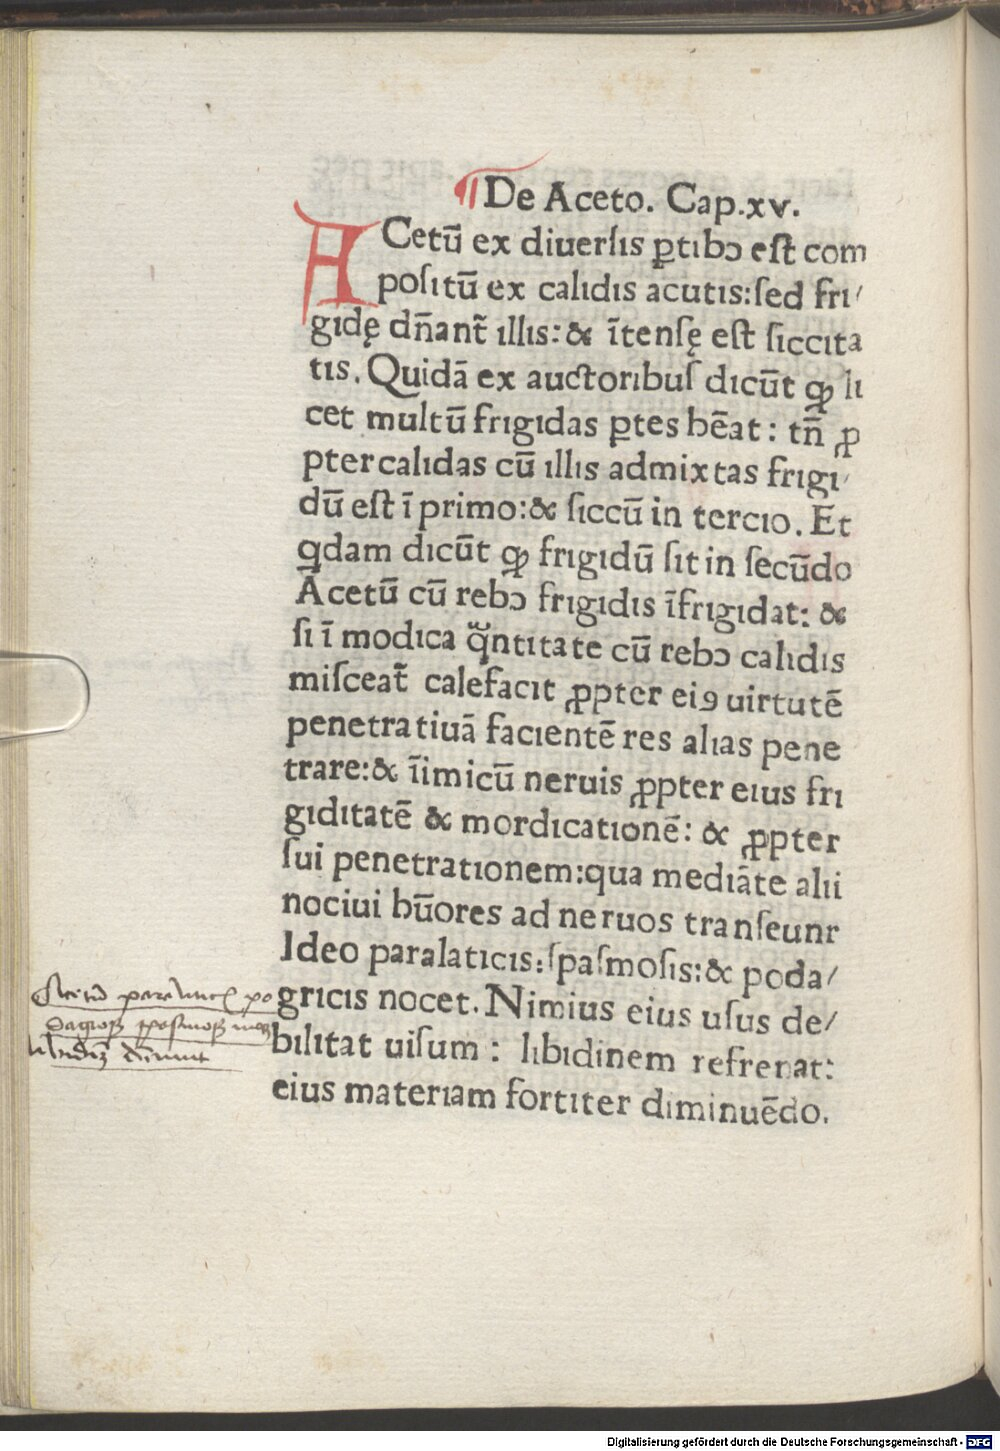 ¶De Aceto. Cap.xv.
ACetū ex diuerſis ꝑtibↄ eſt com
poſitū ex calidis acutis:ſed fri/
gidę dn̄ant̄ illis:& ītenſę eſt ſiccita
tis. Quidā ex auctoribuſ dicūt ꝙ li
cet multū frigidas ꝑtes hēat: tn̄ ꝓ
pter calidas cū illis admixtas frigi/
dū eſt ī primo:& ſiccū in tercio. Et
q̇dam dicūt ꝙ frigidū ſit in ſecūdo
Acetū cū rebↄ frigidis īfrigidat: &
ſi ī modica q̈ntitate cū rebↄ calidis
miſceat̄ calefacit ꝓpter eiꝯ uirtutē
penetratiuā facientē res alias pene
trare:& īimicū neruis ꝓpter eius fri
giditatē & mordicationē: & ꝓpter
ſui penetrationem:qua mediāte alii
nociui hūores ad neruos tranſeunr
Ideo paralaticis:ſpaſmoſis:& poda/
gricis nocet. Nimius eius uſus de/
bilitat uiſum : libidinem refrenat:
eius materiam fortiter diminuēdo.